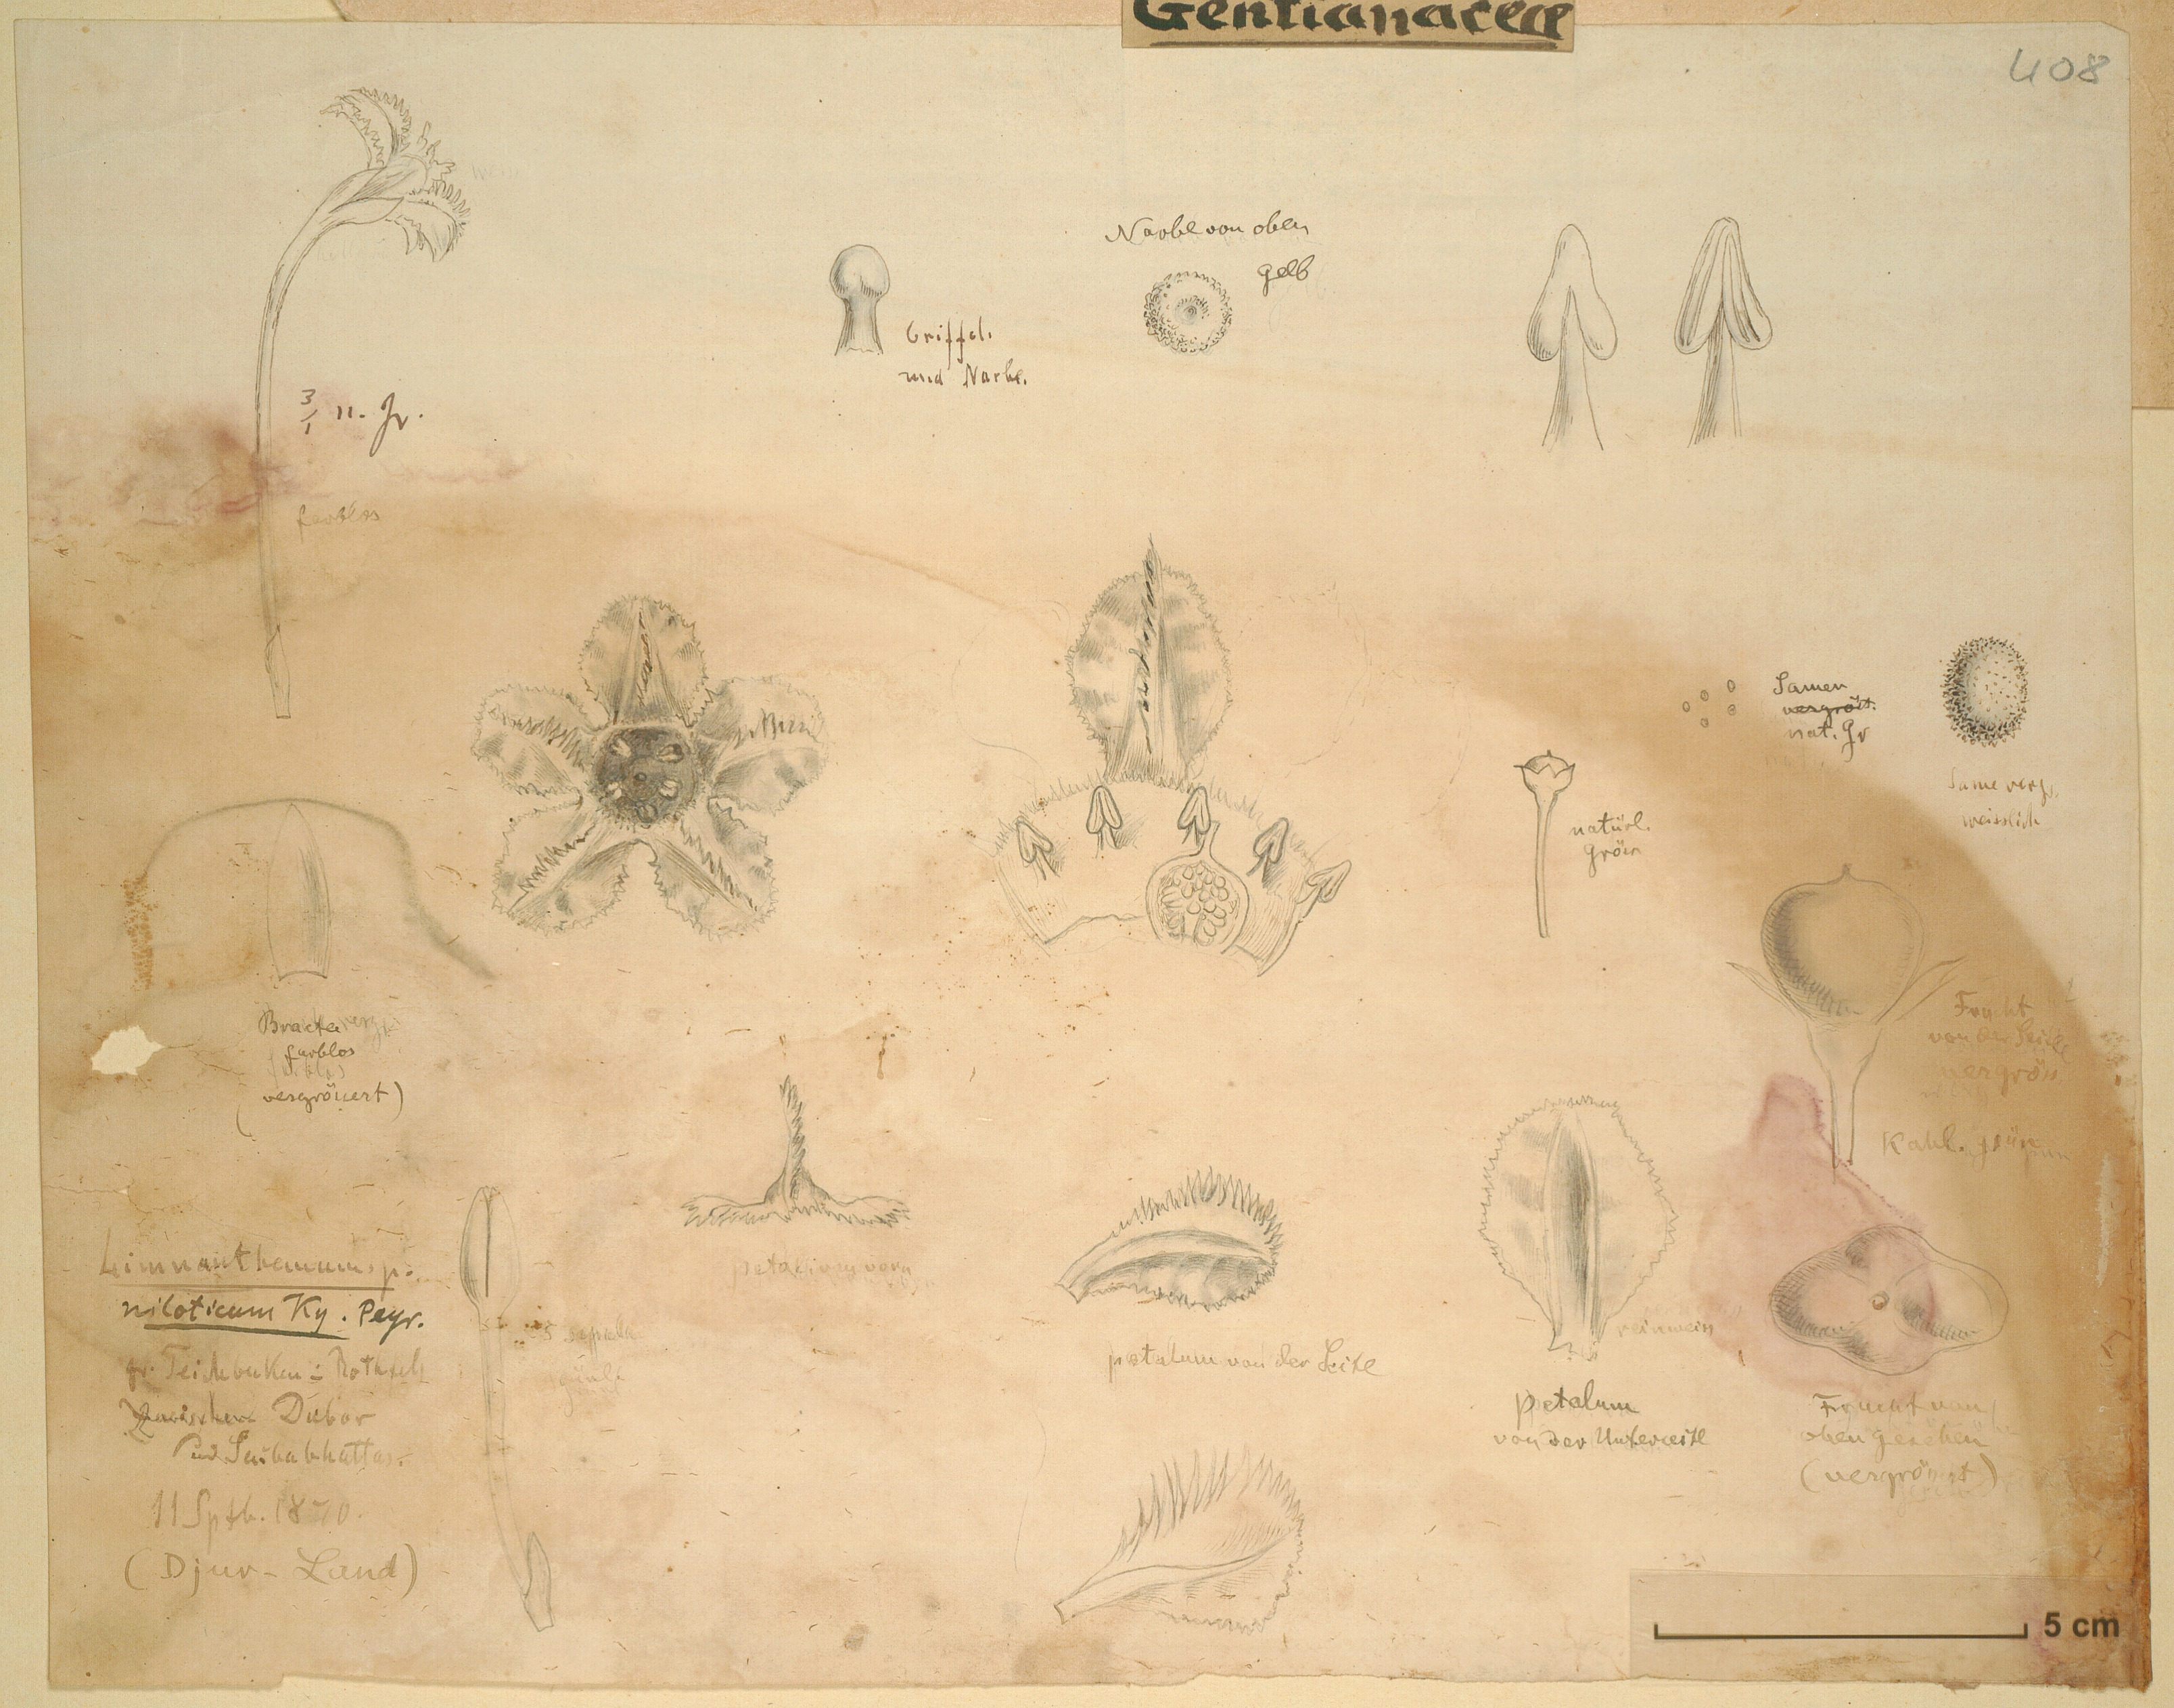 Gentianaceae
408
weiss
Narbe von oben
gelb
Griffel.
und Narbe.
3/1 n. Gr.
farblos
Samen
vergröss.
nat. Gr
Same vergr.
weisslich
natürl.
Grösse
Bractea vergr.
farblos
(vergrössert)
Frucht
von der Seite
vergröss
Kahl. grün
Limnanthemum sp.
niloticum Ky. Peyr.
gr. Teichbecken
zwischen Dubor
und Saibabhattas.
11 Sptb. 1870.
(Djur-Land)
5 sepala
petalum von vorn
petalum von der Seite
reinweiss
petalum
von der Unterseite
Frucht von
oben gesehen
(vergrössert)
5 cm